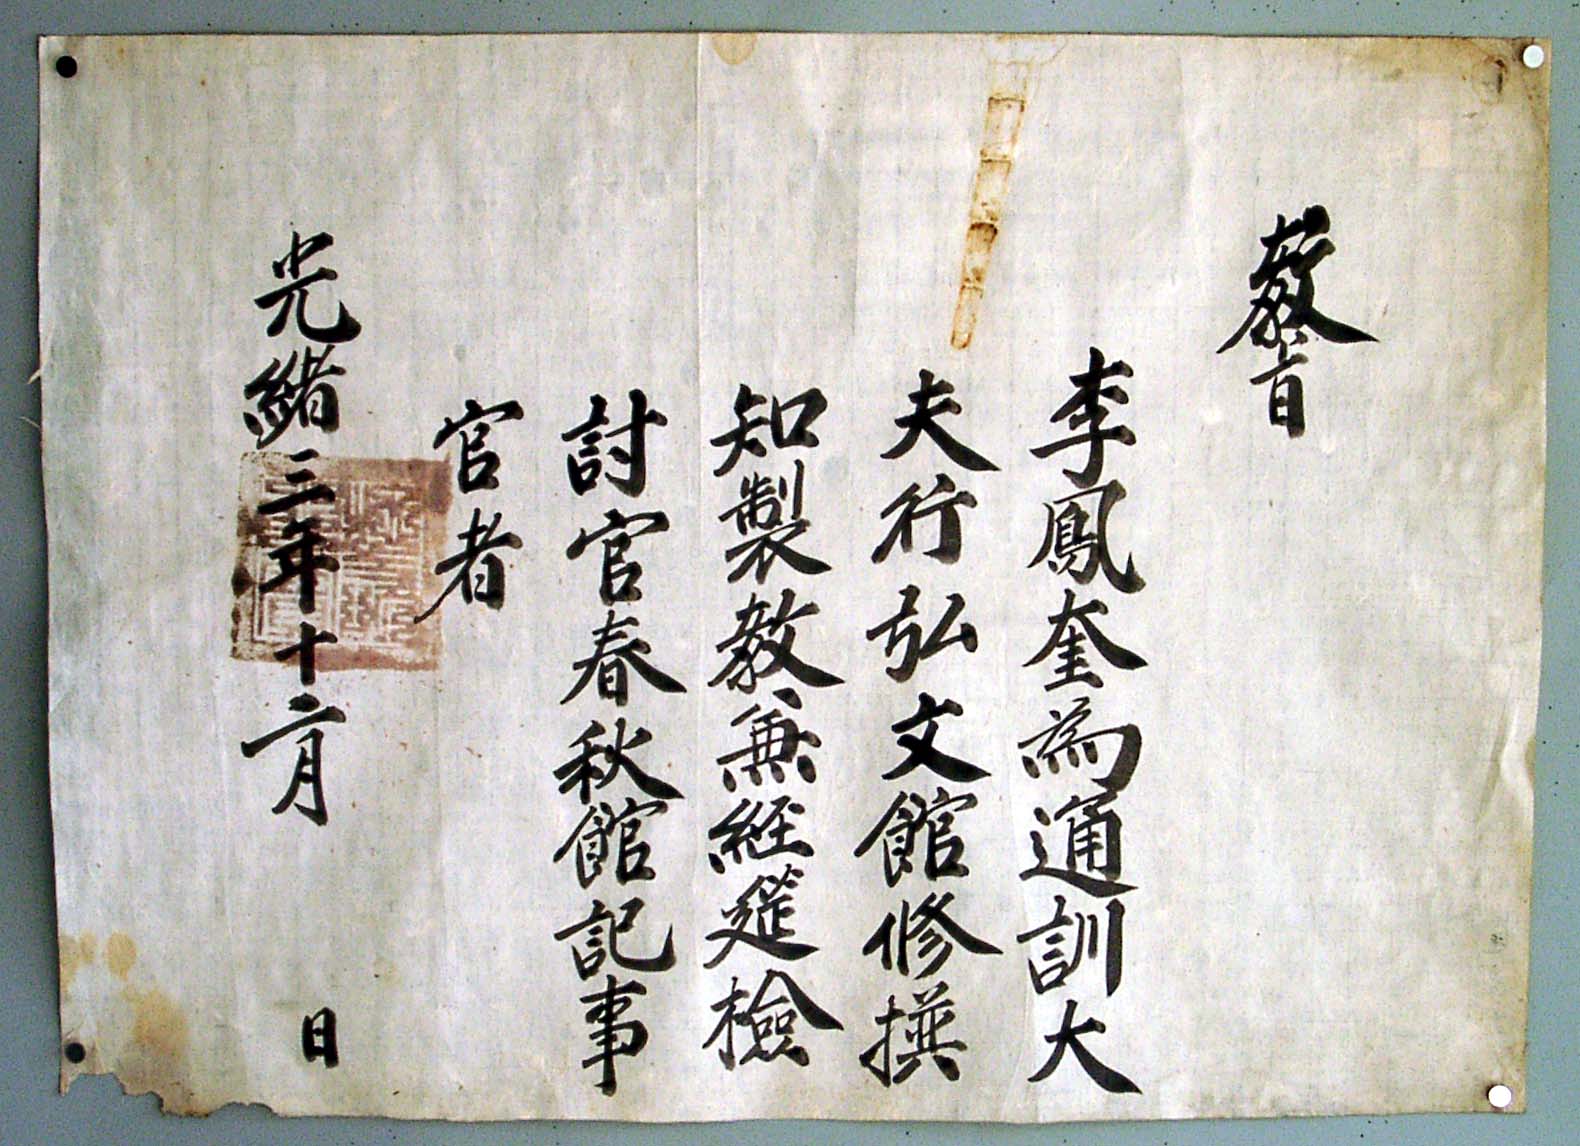 敎旨
李鳳奎爲通訓大
夫行弘文館修撰
知製敎兼經筵檢
討官春秋館記事
官者
光緖三年十二月　日